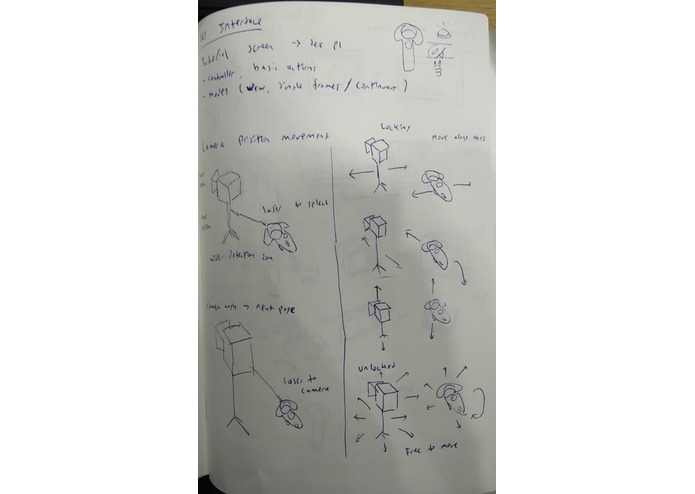 Interface
Tutorial screen → See p1
- controller, basic actions
- modes (view, single frames / continuous)
Camera position movement
Locking
Move along axis
laser to select
wider detection zone
Camera angle → next page
laser to
camera
unlocked
Free to move